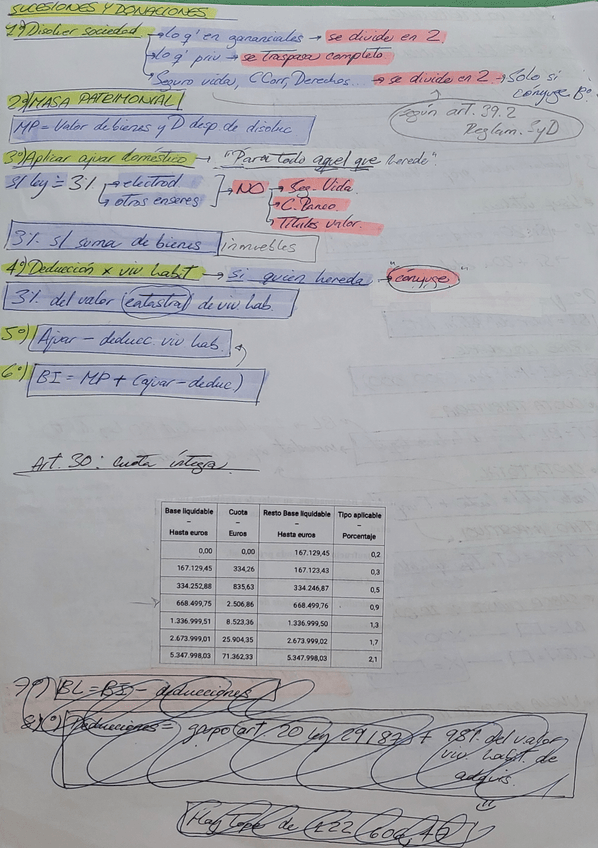 SUCESIONES Y DONACIONES
1º) Disolver sociedad → lo q' en gananciales → se divide en 2.
lo q' priv → se traspasa completo
Seguro vida, C Corr, Derechos... → se divide en 2 → Solo si
cónyuge Bº.
2º) MASA PATRIMONIAL
según art. 39.2
Reglam. SyD
MP = Valor de bienes y D desp. de disoluc.
3º) Aplicar ajuar doméstico → "Para todo aquel que herede"
s/ ley = 3% → electrod → NO → Seg. Vida
→ otros enseres → C. Banco
→ Títulos valor.
3% s/ suma de bienes inmuebles
4º) Deducción x viv habit → si quien hereda → "cónyuge"
3% del valor catastral de viv hab.
5º) Ajuar - deducc. viv hab.
6º) BI = MP + (ajuar - deduc)
Art. 30: cuota íntegra
Base liquidable – Hasta euros Cuota – Euros Resto Base liquidable – Hasta euros Tipo aplicable – Porcentaje
0,00 0,00 167.129,45 0,2
167.129,45 334,26 167.123,43 0,3
334.252,88 835,63 334.246,87 0,5
668.499,75 2.506,86 668.499,76 0,9
1.336.999,51 8.523,36 1.336.999,50 1,3
2.673.999,01 25.904,35 2.673.999,02 1,7
5.347.998,03 71.362,33 5.347.998,03 2,1
7º) BL = BI - deducciones
8º) Deducciones = grupo (art 20 ley 29/87) + 98% del valor
viv. habit. de
adquis.
Hay tope de 122.606,47